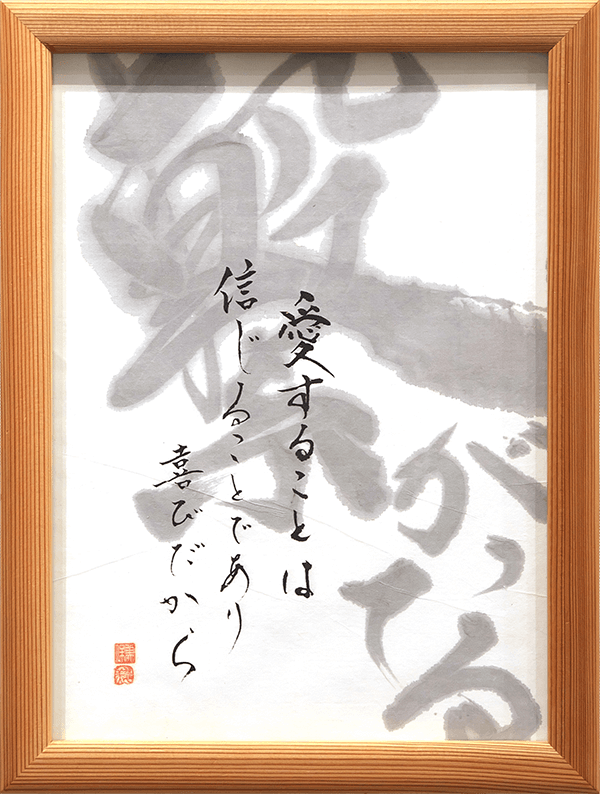 繋がってる
愛することは
信じることであり
喜びだから